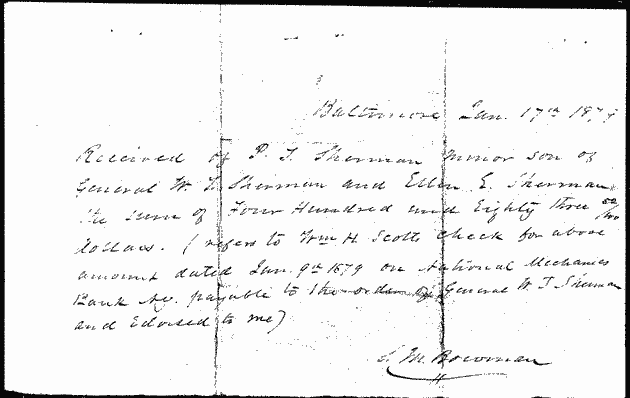 Baltimore Jan. 17th 1879
Received of P. T. Sherman minor son of
General W. T. Sherman and Ellen E. Sherman
the sum of Four Hundred and Eighty three
dollars. (refers to Wm H. Scotts check for above
amount dated Jan. 9th 1879 on National Mechanics
Bank &c. payable to the order of General W T Sherman
and Edorsed to me)
S. M. Bowman